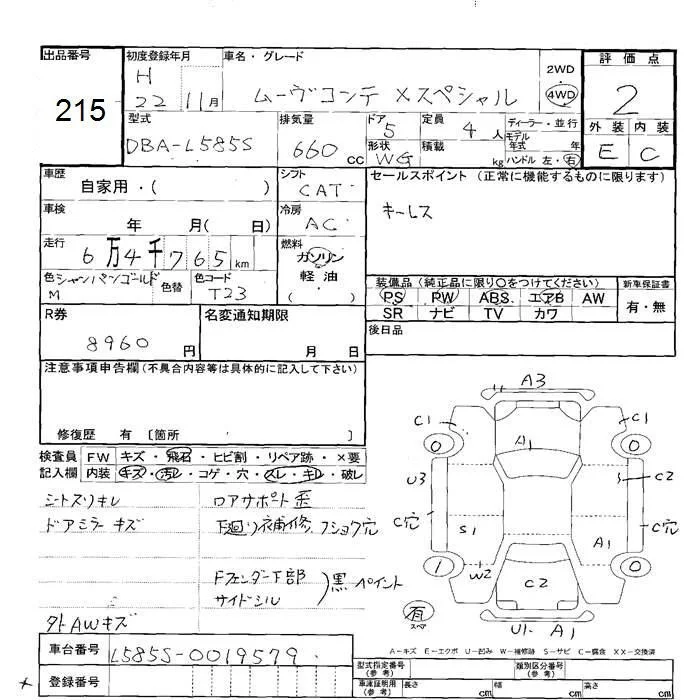 出品番号
215
初度登録年月
H
22 11月
車名・グレード
ムーヴコンテ Xスペシャル
2WD
4WD
評価点
2
外装 内装
E C
型式
DBA-L585S
排気量
660 cc
ドア
5
形状
W
定員
4 人
積載
kg
ディーラー・並行
モデル
年式 年
ハンドル 左・右
車歴
自家用・( )
シフト
CAT
セールスポイント (正常に機能するものに限ります)
キーレス
車検
年 月( 日)
冷房
AC
走行
6万4千765km
燃料
ガソリン
軽油
( )
色 シャンパンゴールド
M
色替
色コード
T23
装備品 (純正品に限り○をつけてください)
PS PW ABS エアB AW
SR ナビ TV カワ
新車保証書
有・無
R券
8960 円
名変通知期限
月 日
後日品
注意事項申告欄 (不具合内容等は具体的に記入して下さい)
修復歴 有 〔箇所 〕
検査員 FW キズ・飛石・ヒビ割・リペア跡・×要
記入欄 内装 キズ・汚レ・コゲ・穴・スレ・キレ・破レ
シートスリキレ
ドアミラーキズ
ロアサポート歪
下廻り補修、フショク穴
Fフェンダー下部
サイドシル
黒ペイント
外AWキズ
A3
C1
C1
0
0
A1
U3
C2
C穴
C穴
S1
A1
1
W2
C2
0
有
スペア
U1 A1
A-キズ E-エクボ U-凹み W-補修跡 S-サビ C-腐食 XX-交換済
車台番号
L585S-0019579
登録番号
型式指定番号
(参考)
類別区分番号
(参考)
車庫証明用
(参考)
長さ cm
幅 cm
高さ cm